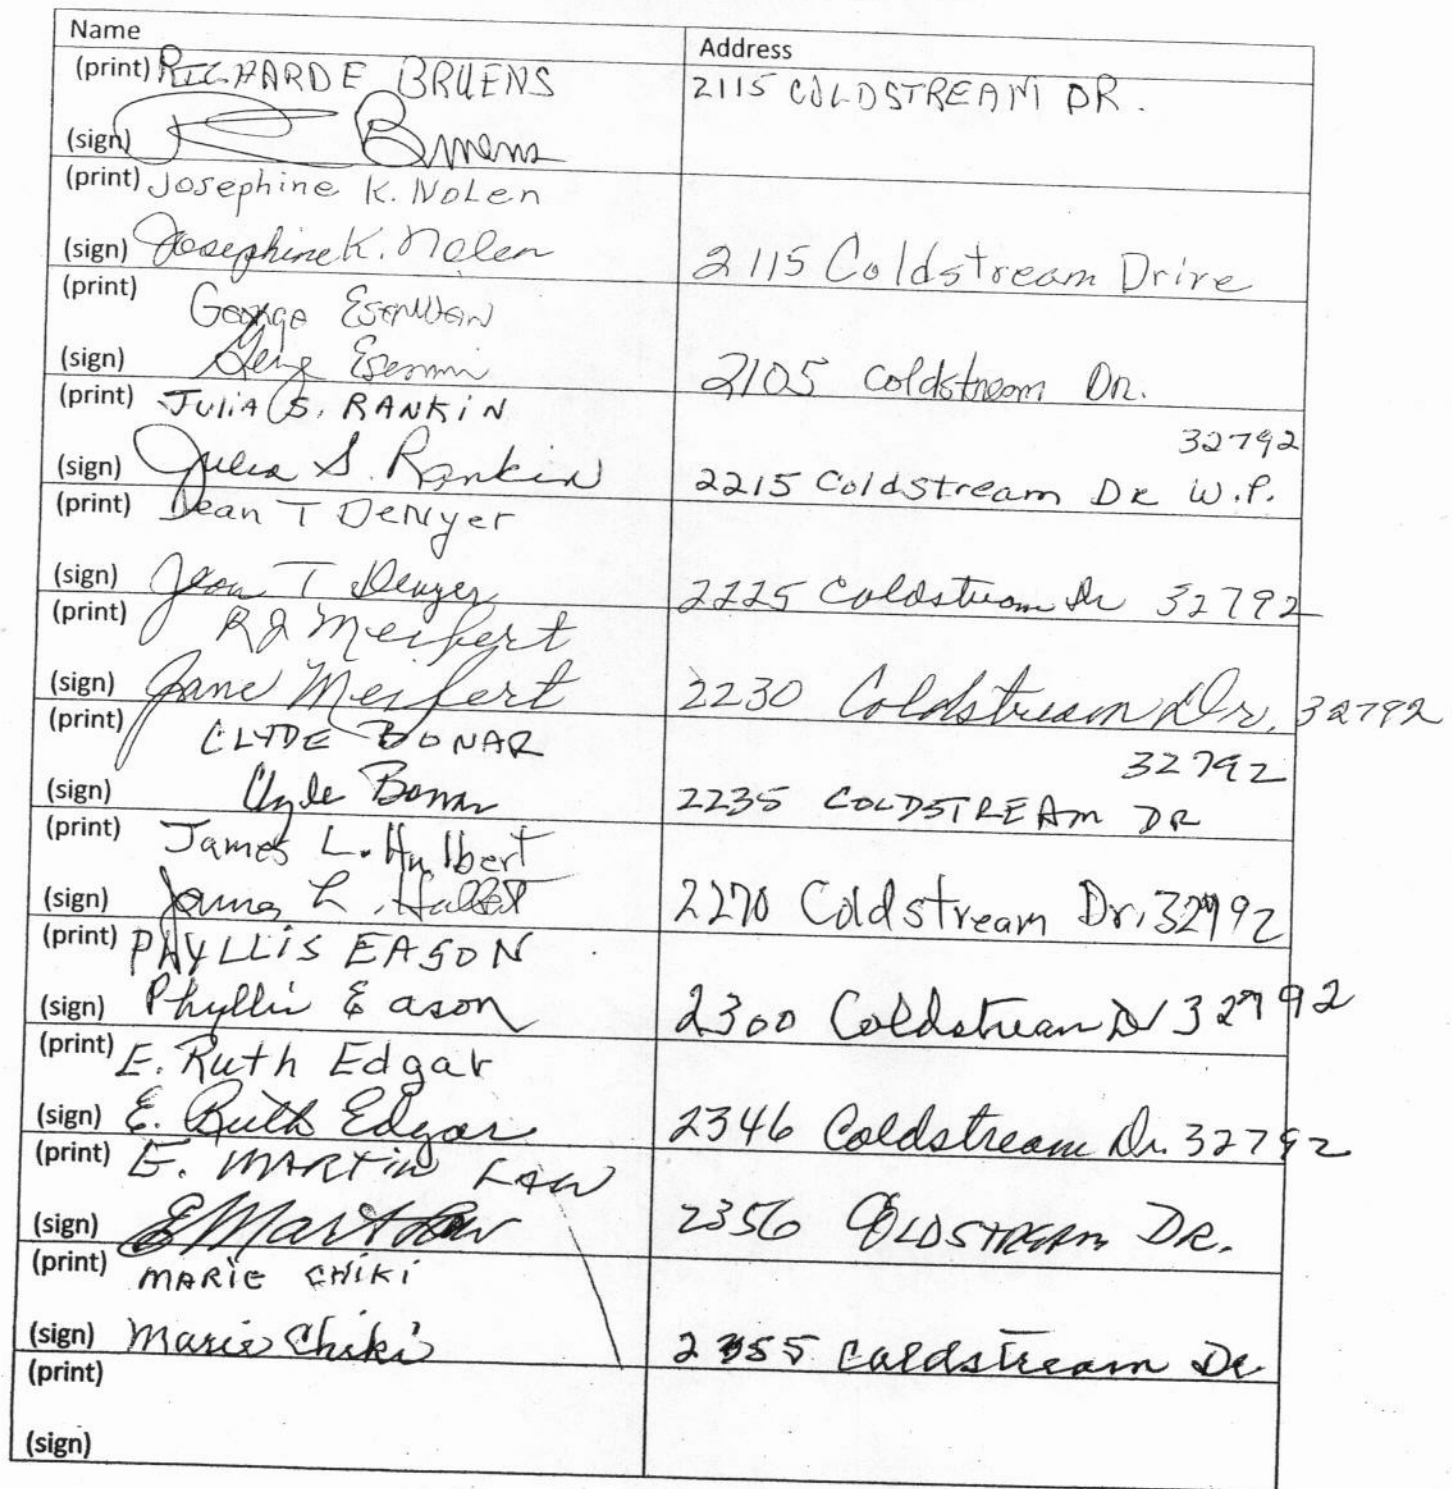 Name Address
(print) RICHARD E BRUENS 2115 COLDSTREAM DR.
(sign) R Bruens
(print) Josephine K. Nolen
(sign) Josephine K. Nolen 2115 Coldstream Drive
(print) George Esenwein
(sign) 2105 Coldstream Dr.
(print) JULIA S. RANKIN 32792
(sign) Julia S. Rankin 2215 Coldstream DR W.P.
(print) Dean T DeNyer
(sign) T Denyer 2225 Coldstream Dr 32792
(print) RJ Meifert
(sign) Jane Meifert 2230 Coldstream Dr, 32792
(print) CLYDE BONAR 32792
(sign) Clyde Bonar 2235 COLDSTREAM DR
(print) James L. Hulbert
(sign) James L. Hulbert 2270 Coldstream Dr. 32792
(print) PHYLLIS EASON
(sign) Phyllis Eason 2300 Coldstream Dr 32792
(print) E. Ruth Edgar
(sign) E. Ruth Edgar 2346 Coldstream Dr. 32792
(print) E. MARTIN LAW
(sign) E Martin Law 2356 COLDSTREAM DR.
(print) MARIE CHIKI
(sign) Marie Chiki 2355 Coldstream Dr
(print)
(sign)